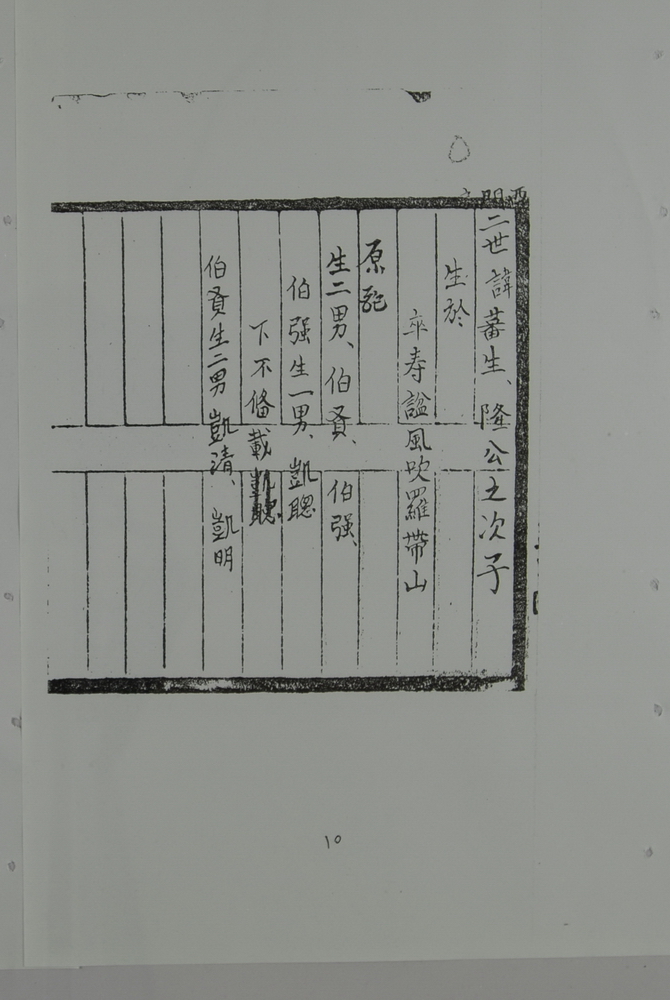 二世諱蕃生、隆公之次子
生於
卒寿諡風吹羅帶山
原配
生二男、伯賢、伯强、
伯强生一男、凱聰
下不俻載凱聰
伯賢生二男凱清、凱明
10